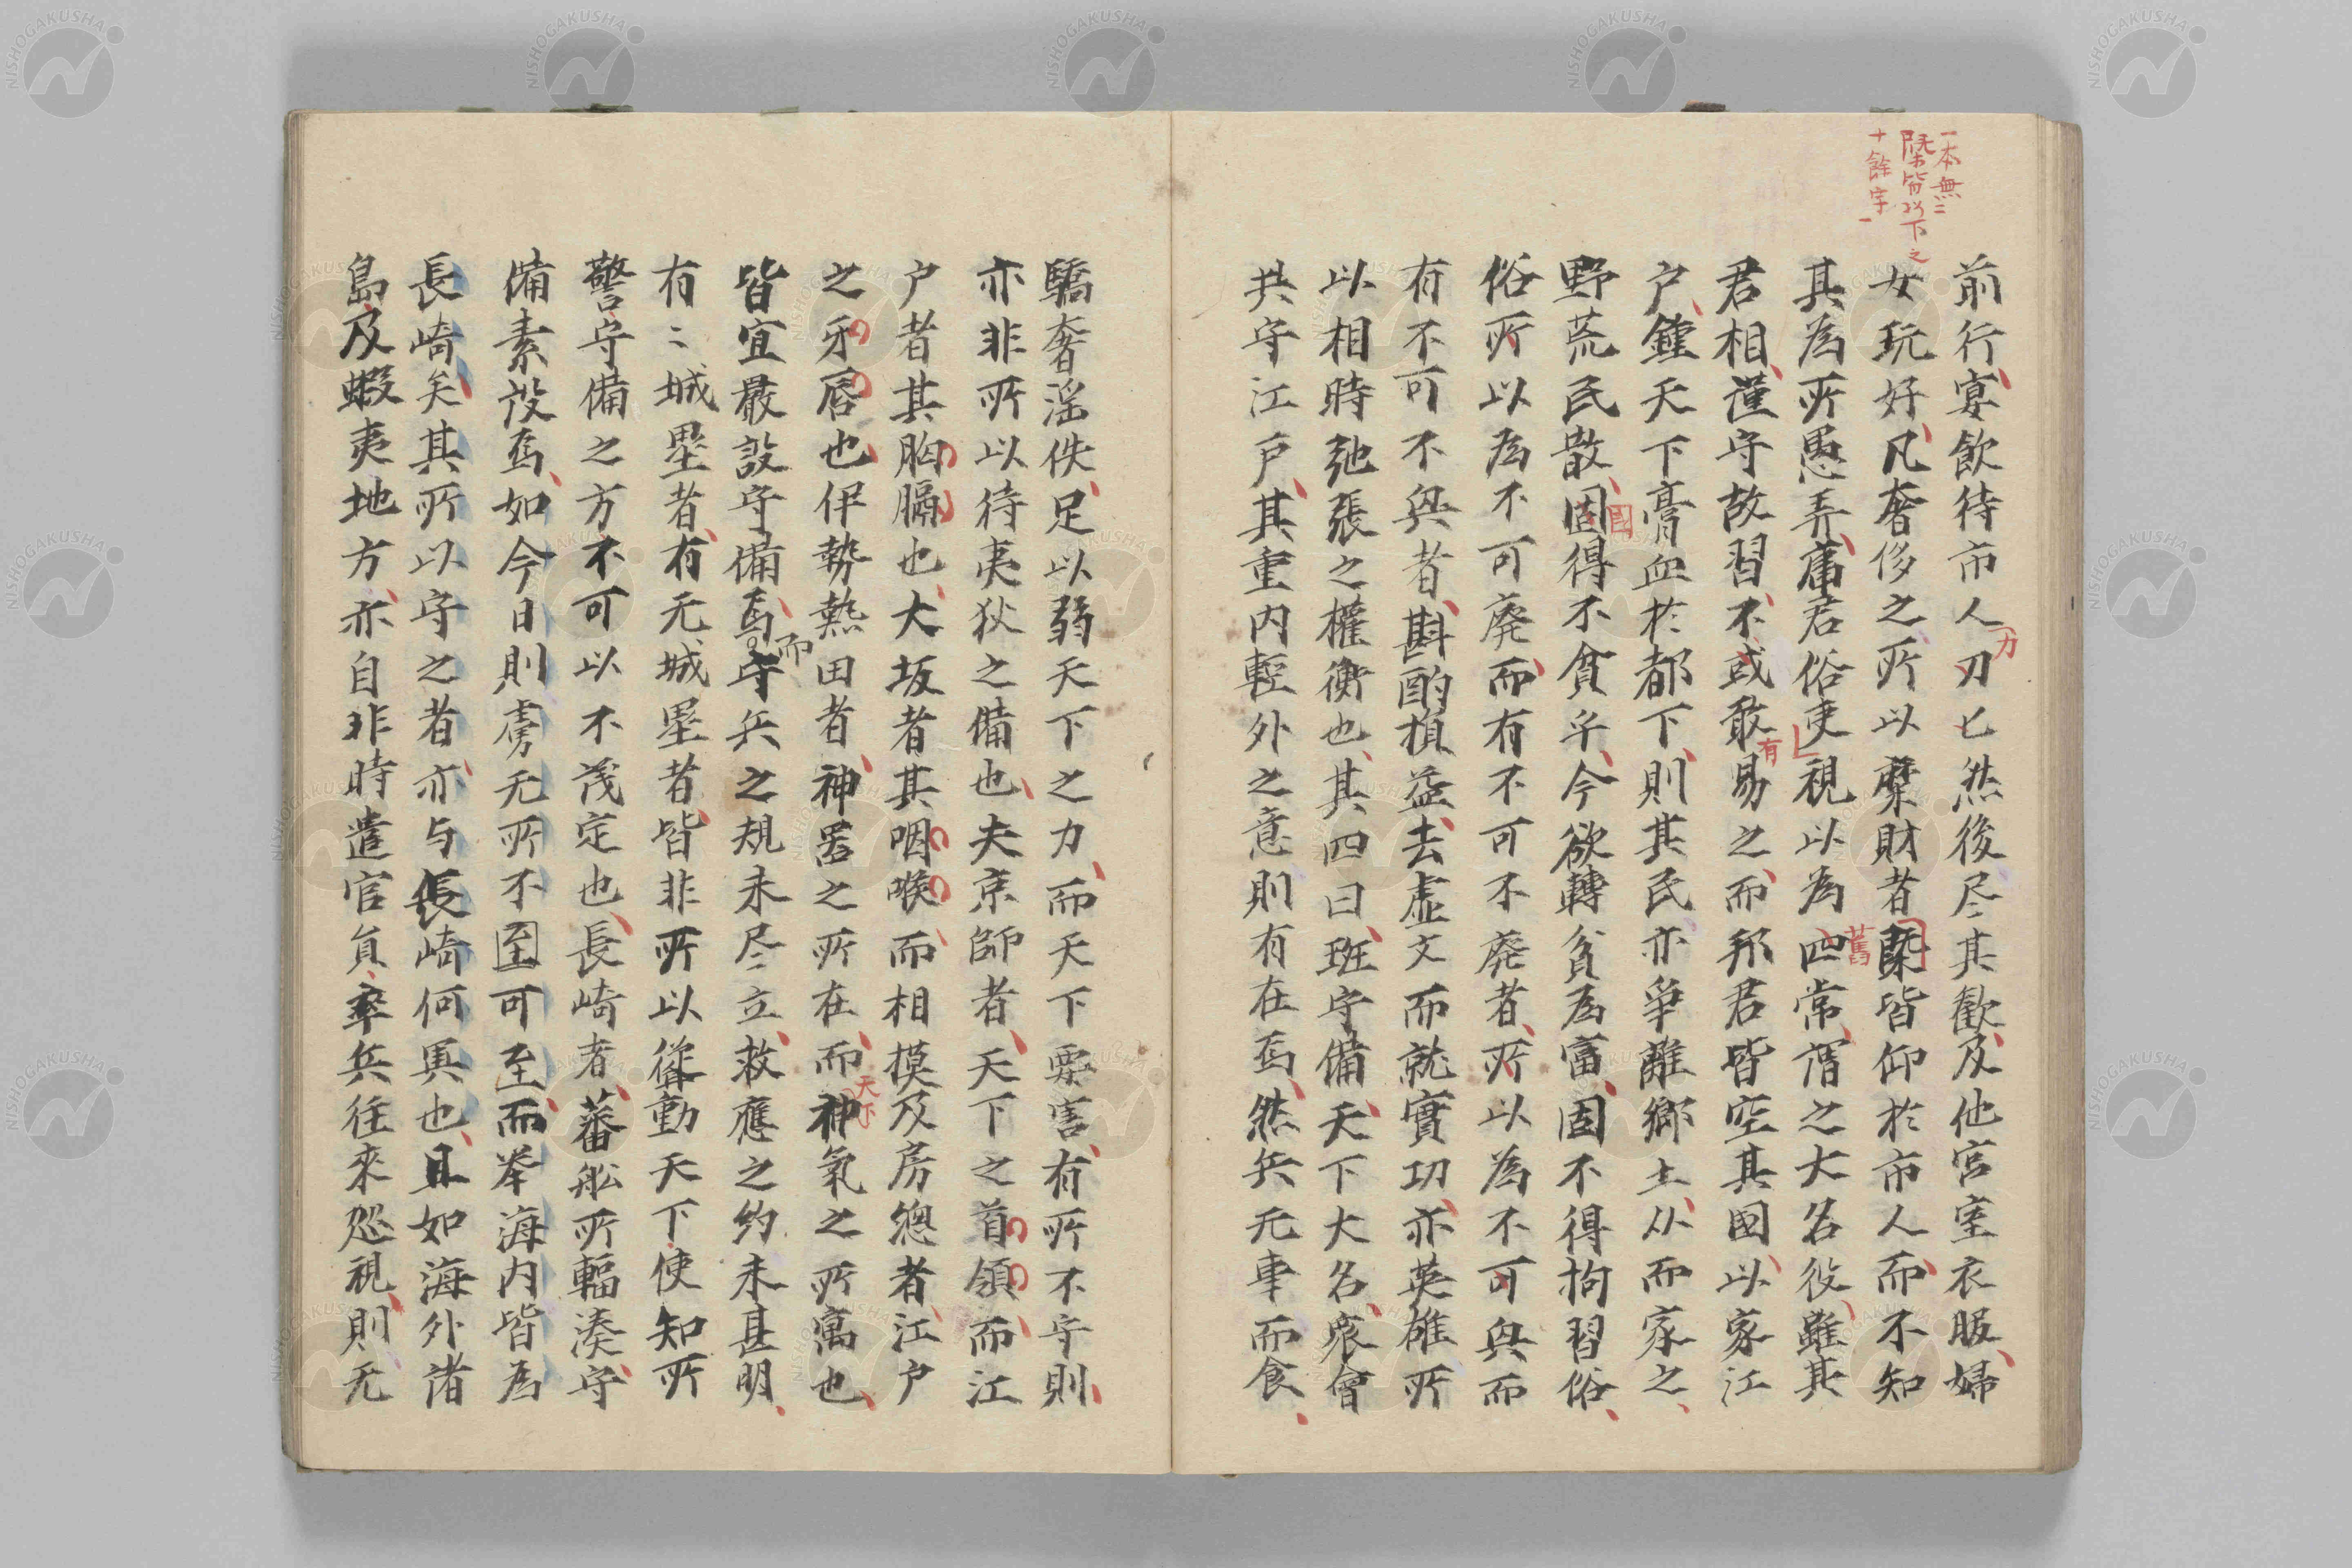 一本無
槩皆以下之
十餘字
前行宴飲待市人刀匕然後尽其歡及他宮室衣服婦
力
女玩好凡奢侈之所以糜財者槩皆仰於市人而不知
其為所愚弄庸君俗吏視以為四常謂之大名役雖其
舊
君相謹守故習不或敢易之而邦君皆空其國以家江
有
戶鍾天下膏血於都下則其民亦爭離鄉土从而家之
野荒民散固得不貧乎今欲轉貧為富固不得拘習俗
國
俗所以為不可廢而有不可不廢者所以為不可與而
有不可不與者斟酌損益去虛文而就實功亦英雄所
以相時弛張之權衡也其四曰班守備天下大名眾會
共守江戶其重內輕外之意則有在焉然兵无事而食
驕奢淫佚足以弱天下之力而天下要害有所不守則
亦非所以待夷狄之備也夫京師者天下之首領而江
戶者其胸膈也大坂者其咽喉而相摸及房總者江戶
之牙唇也伊勢熱田者神器之所在而神氣之所寓也
天下
皆宜嚴設守備焉守兵之規未尽立救應之約未甚明
而
有二城壘者有无城壘者皆非所以聳動天下使知所
警守備之方不可以不茂定也長崎者蕃舩所輻湊守
備素設焉如今日則虜无所不至可至而举海内皆為
長崎矣其所以守之者亦与長崎何異也且如海外諸
島及蝦夷地方亦自非時遣官負率兵往來巡視則无